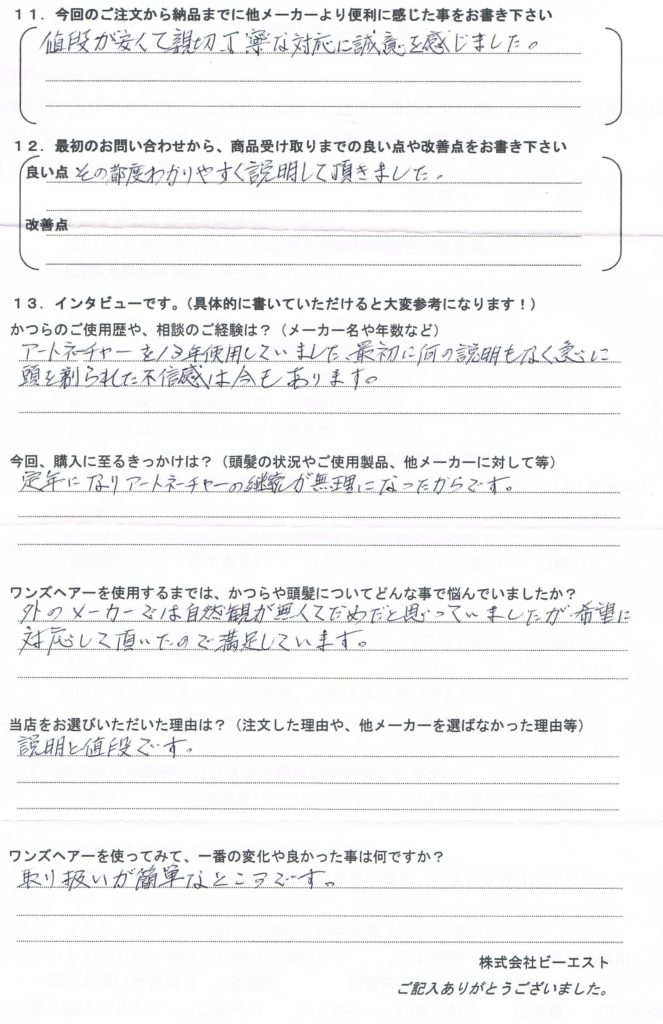 １１．今回のご注文から納品までに他メーカーより便利に感じた事をお書き下さい
値段が安くて親切丁寧な対応に誠意を感じました。
１２．最初のお問い合わせから、商品受け取りまでの良い点や改善点をお書き下さい
良い点 その都度わかりやすく説明して頂きました。
改善点
１３．インタビューです。（具体的に書いていただけると大変参考になります！）
かつらのご使用歴や、相談のご経験は？（メーカー名や年数など）
アートネーチャーを13年使用していました、最初に何の説明もなく急に
頭を剃られた不信感は今もあります。
今回、購入に至るきっかけは？（頭髪の状況やご使用製品、他メーカーに対して等）
定年になりアートネーチャーの継続が無理になったからです。
ワンズヘアーを使用するまでは、かつらや頭髪についてどんな事で悩んでいましたか？
外のメーカーでは自然観が無くてだめだと思っていましたが、希望に
対応して頂いたので満足しています。
当店をお選びいただいた理由は？（注文した理由や、他メーカーを選ばなかった理由等）
説明と値段です。
ワンズヘアーを使ってみて、一番の変化や良かった事は何ですか？
取り扱いが簡単なところです。
株式会社ビーエスト
ご記入ありがとうございました。